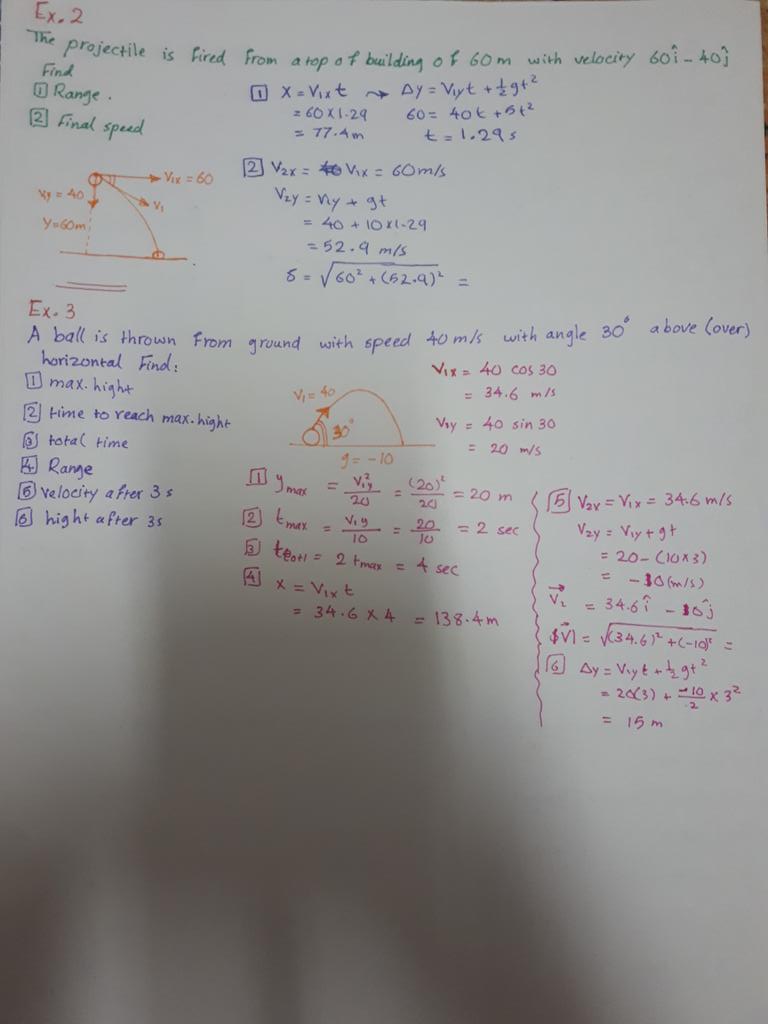 Ex.2
The projectile is fired from a top of building of 60 m with velocity 60î - 40ĵ
Find
1 Range.
2 Final speed
1 X = V₁ₓ t ⇝ Δy = V₁yt + ½gt²
= 60 × 1.29    60 = 40t + 5t²
= 77.4 m    t = 1.29 s
V₁ₓ = 60
Vy = 40
V₁
Y = 60m
2 V₂ₓ = V₁ₓ = 60 m/s
V₂y = V₁y + gt
= 40 + 10 × 1.29
= 52.9 m/s
S = √(60² + (52.9)²) =
Ex. 3
A ball is thrown from ground with speed 40 m/s with angle 30° above (over)
horizontal Find:
1 max. hight
2 time to reach max. hight
3 total time
4 Range
5 velocity after 3 s
6 hight after 3s
V₁ = 40
30°
g = -10
V₁ₓ = 40 cos 30
= 34.6 m/s
V₁y = 40 sin 30
= 20 m/s
1 ymax = V₁y²/20 = (20)²/20 = 20 m
2 tmax = V₁y/10 = 20/10 = 2 sec
3 ttotl = 2 tmax = 4 sec
4 X = V₁ₓ t
= 34.6 × 4 = 138.4 m
5 V₂ₓ = V₁ₓ = 34.6 m/s
V₂y = V₁y + gt
= 20 - (10×3)
= -10 (m/s)
V⃗₂ = 34.6 î - 10 ĵ
|V⃗| = √((34.6)² + (-10)²) =
6 Δy = V₁yt + ½gt²
= 20(3) + -10/2 × 3²
= 15 m